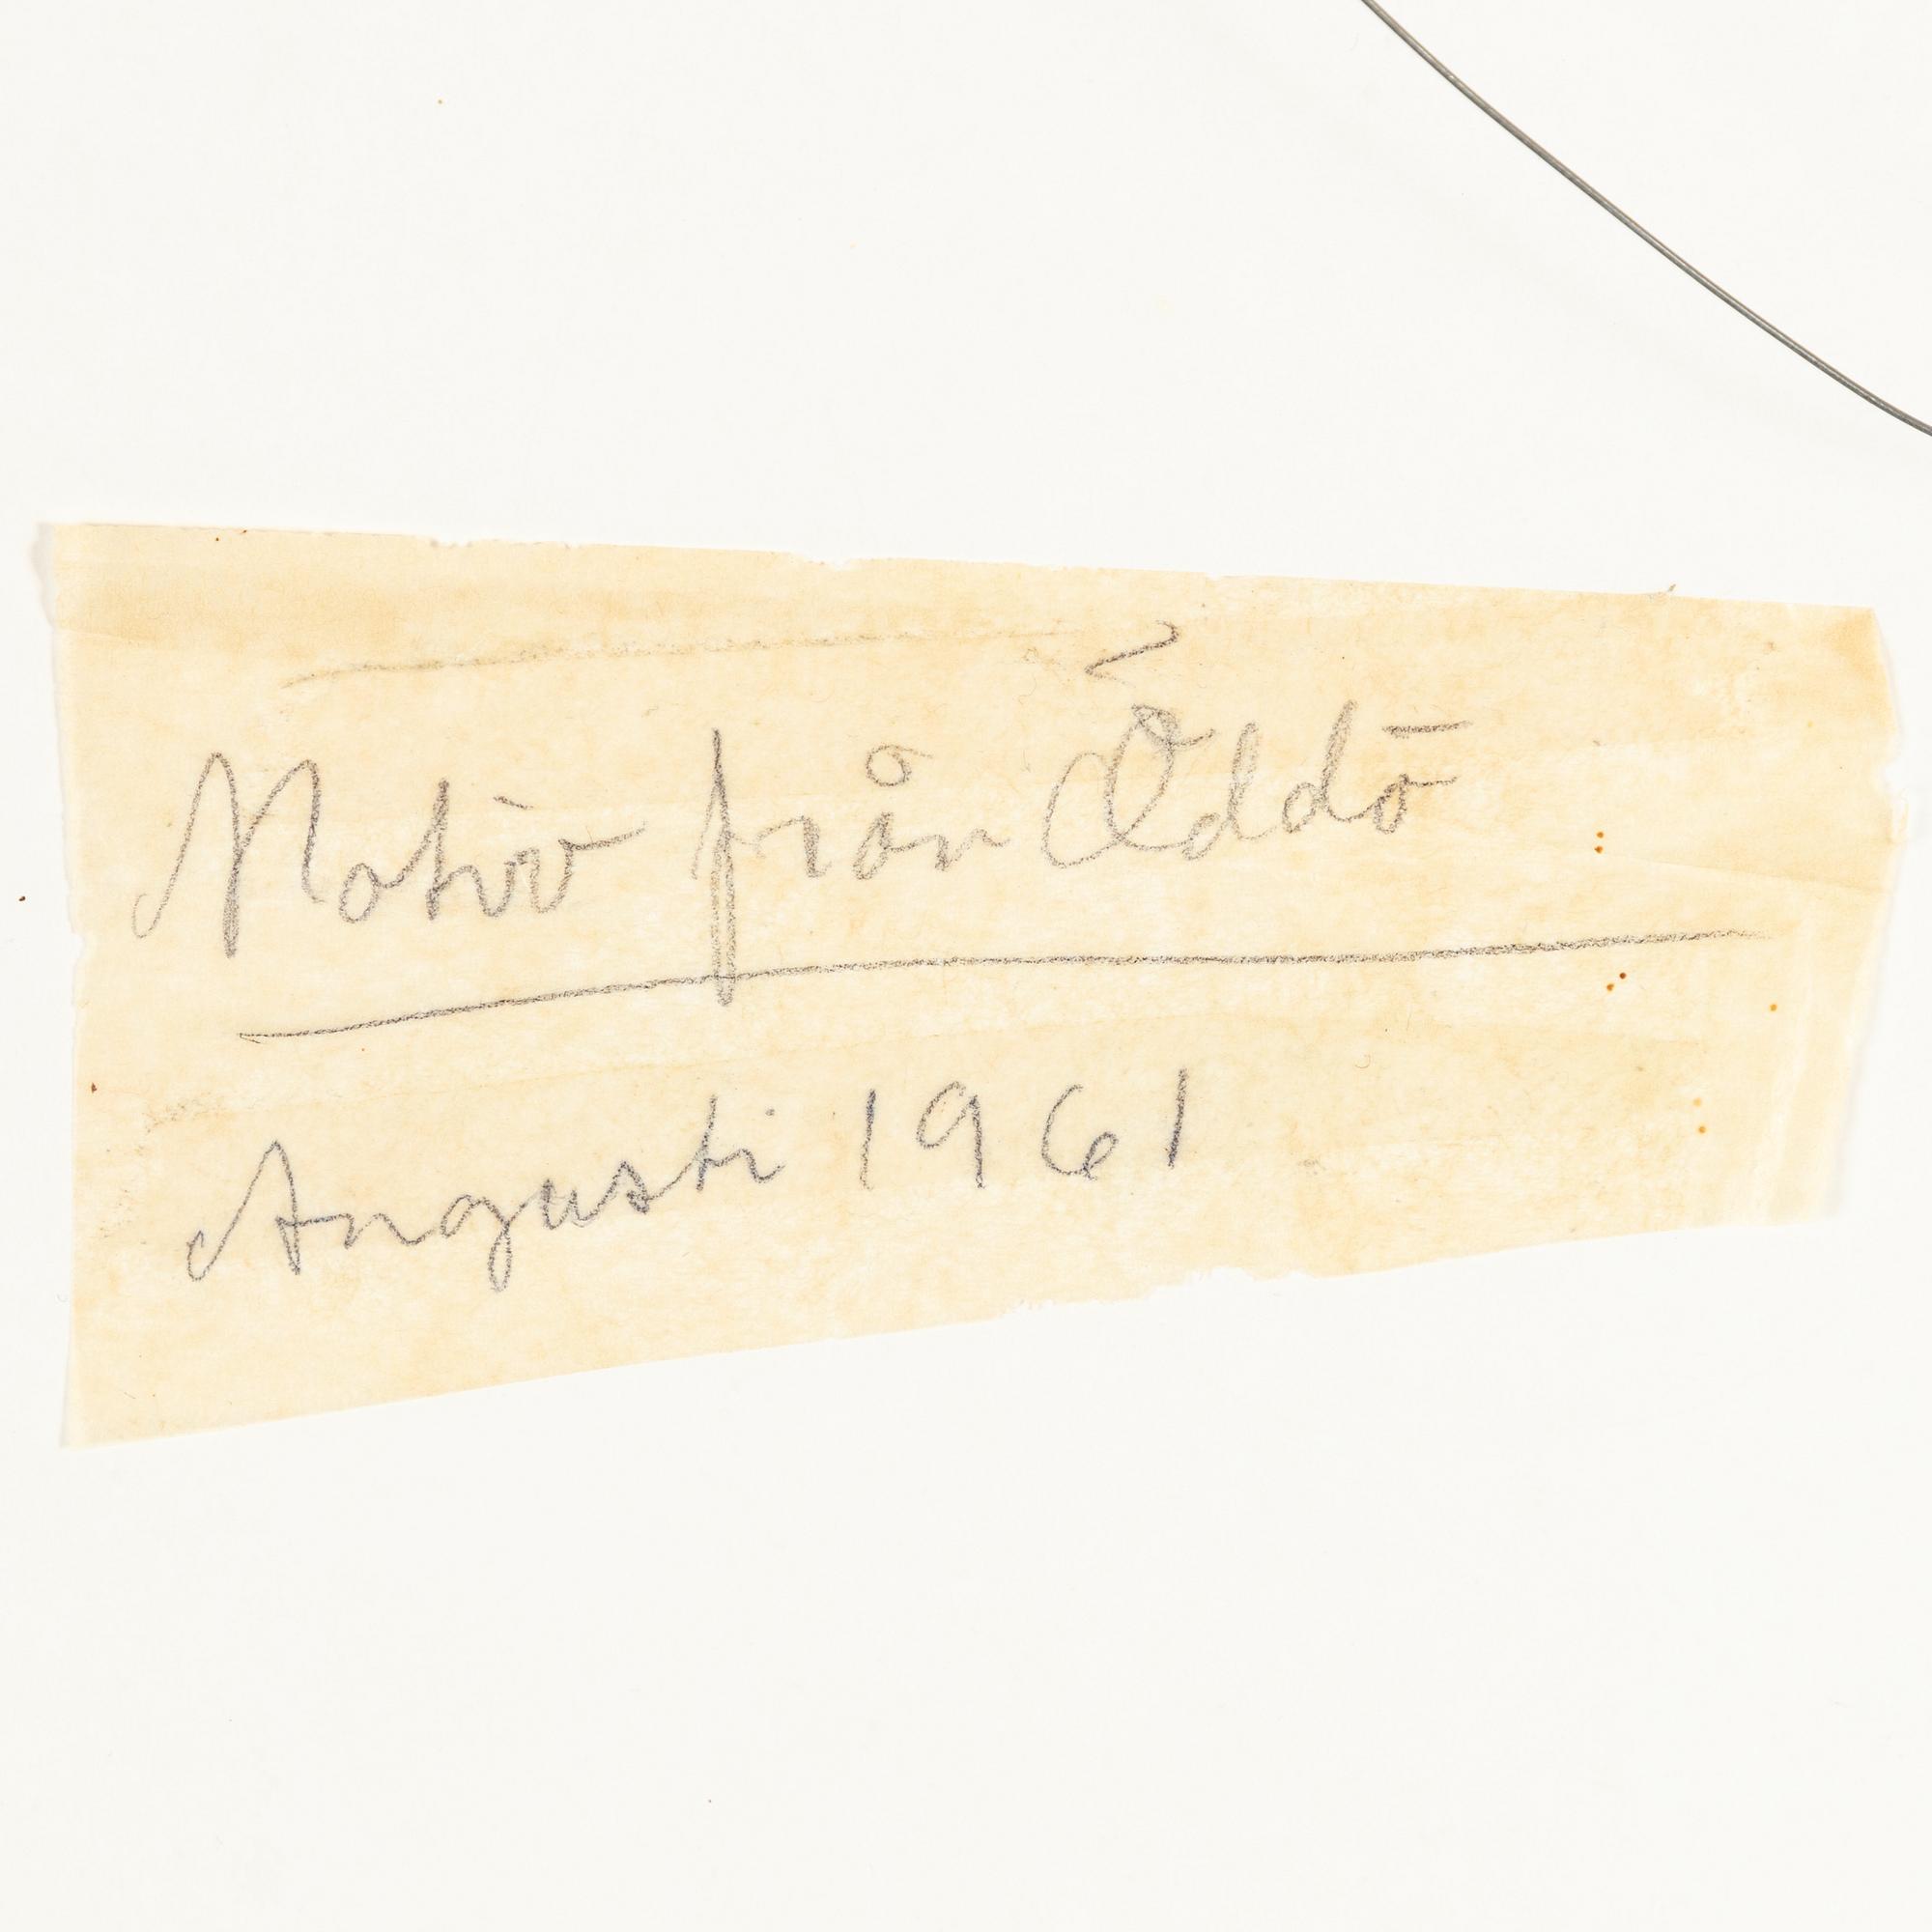 Motiv från Öddö
Augusti 1961